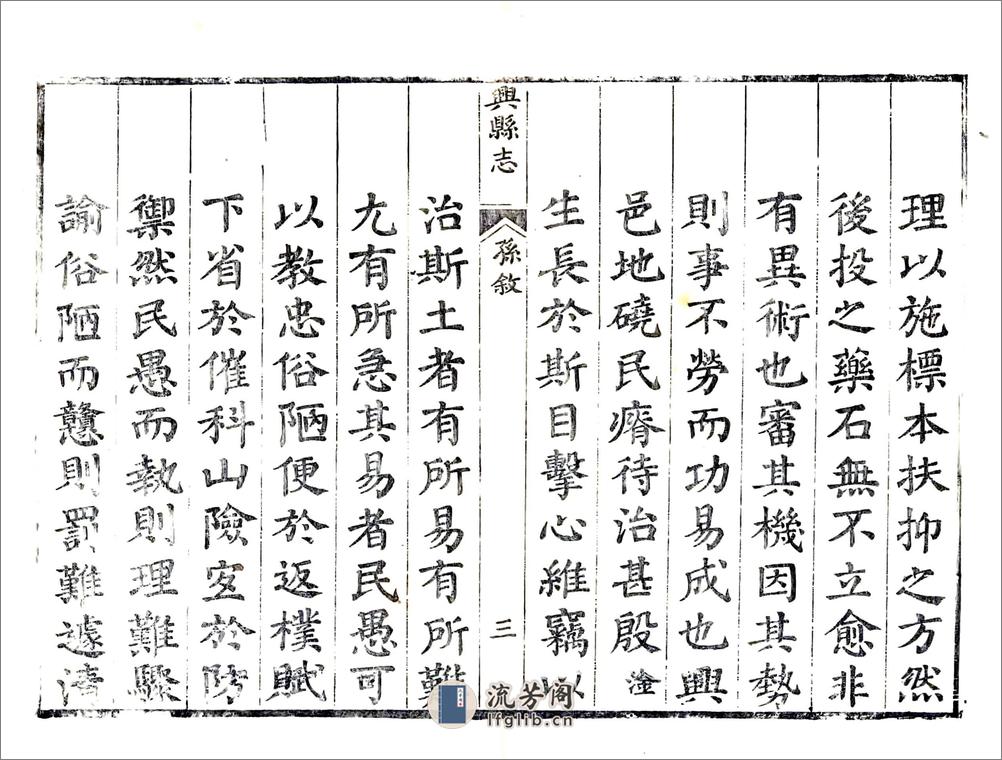 理以施標本扶抑之方然
後投之藥石無不立愈非
有異術也審其機因其勢
則事不勞而功易成也興
邑地磽民瘠待治甚殷淦
生長於斯目擊心維竊以
興縣志
孫敘
三
治斯土者有所易有所難
尤有所急其易者民愚可
以教忠俗陋便於返樸賦
下省於催科山險宐於防
禦然民愚而執則理難驟
諭俗陋而戇則罰難遽清
流芳阁
lfglib.cn